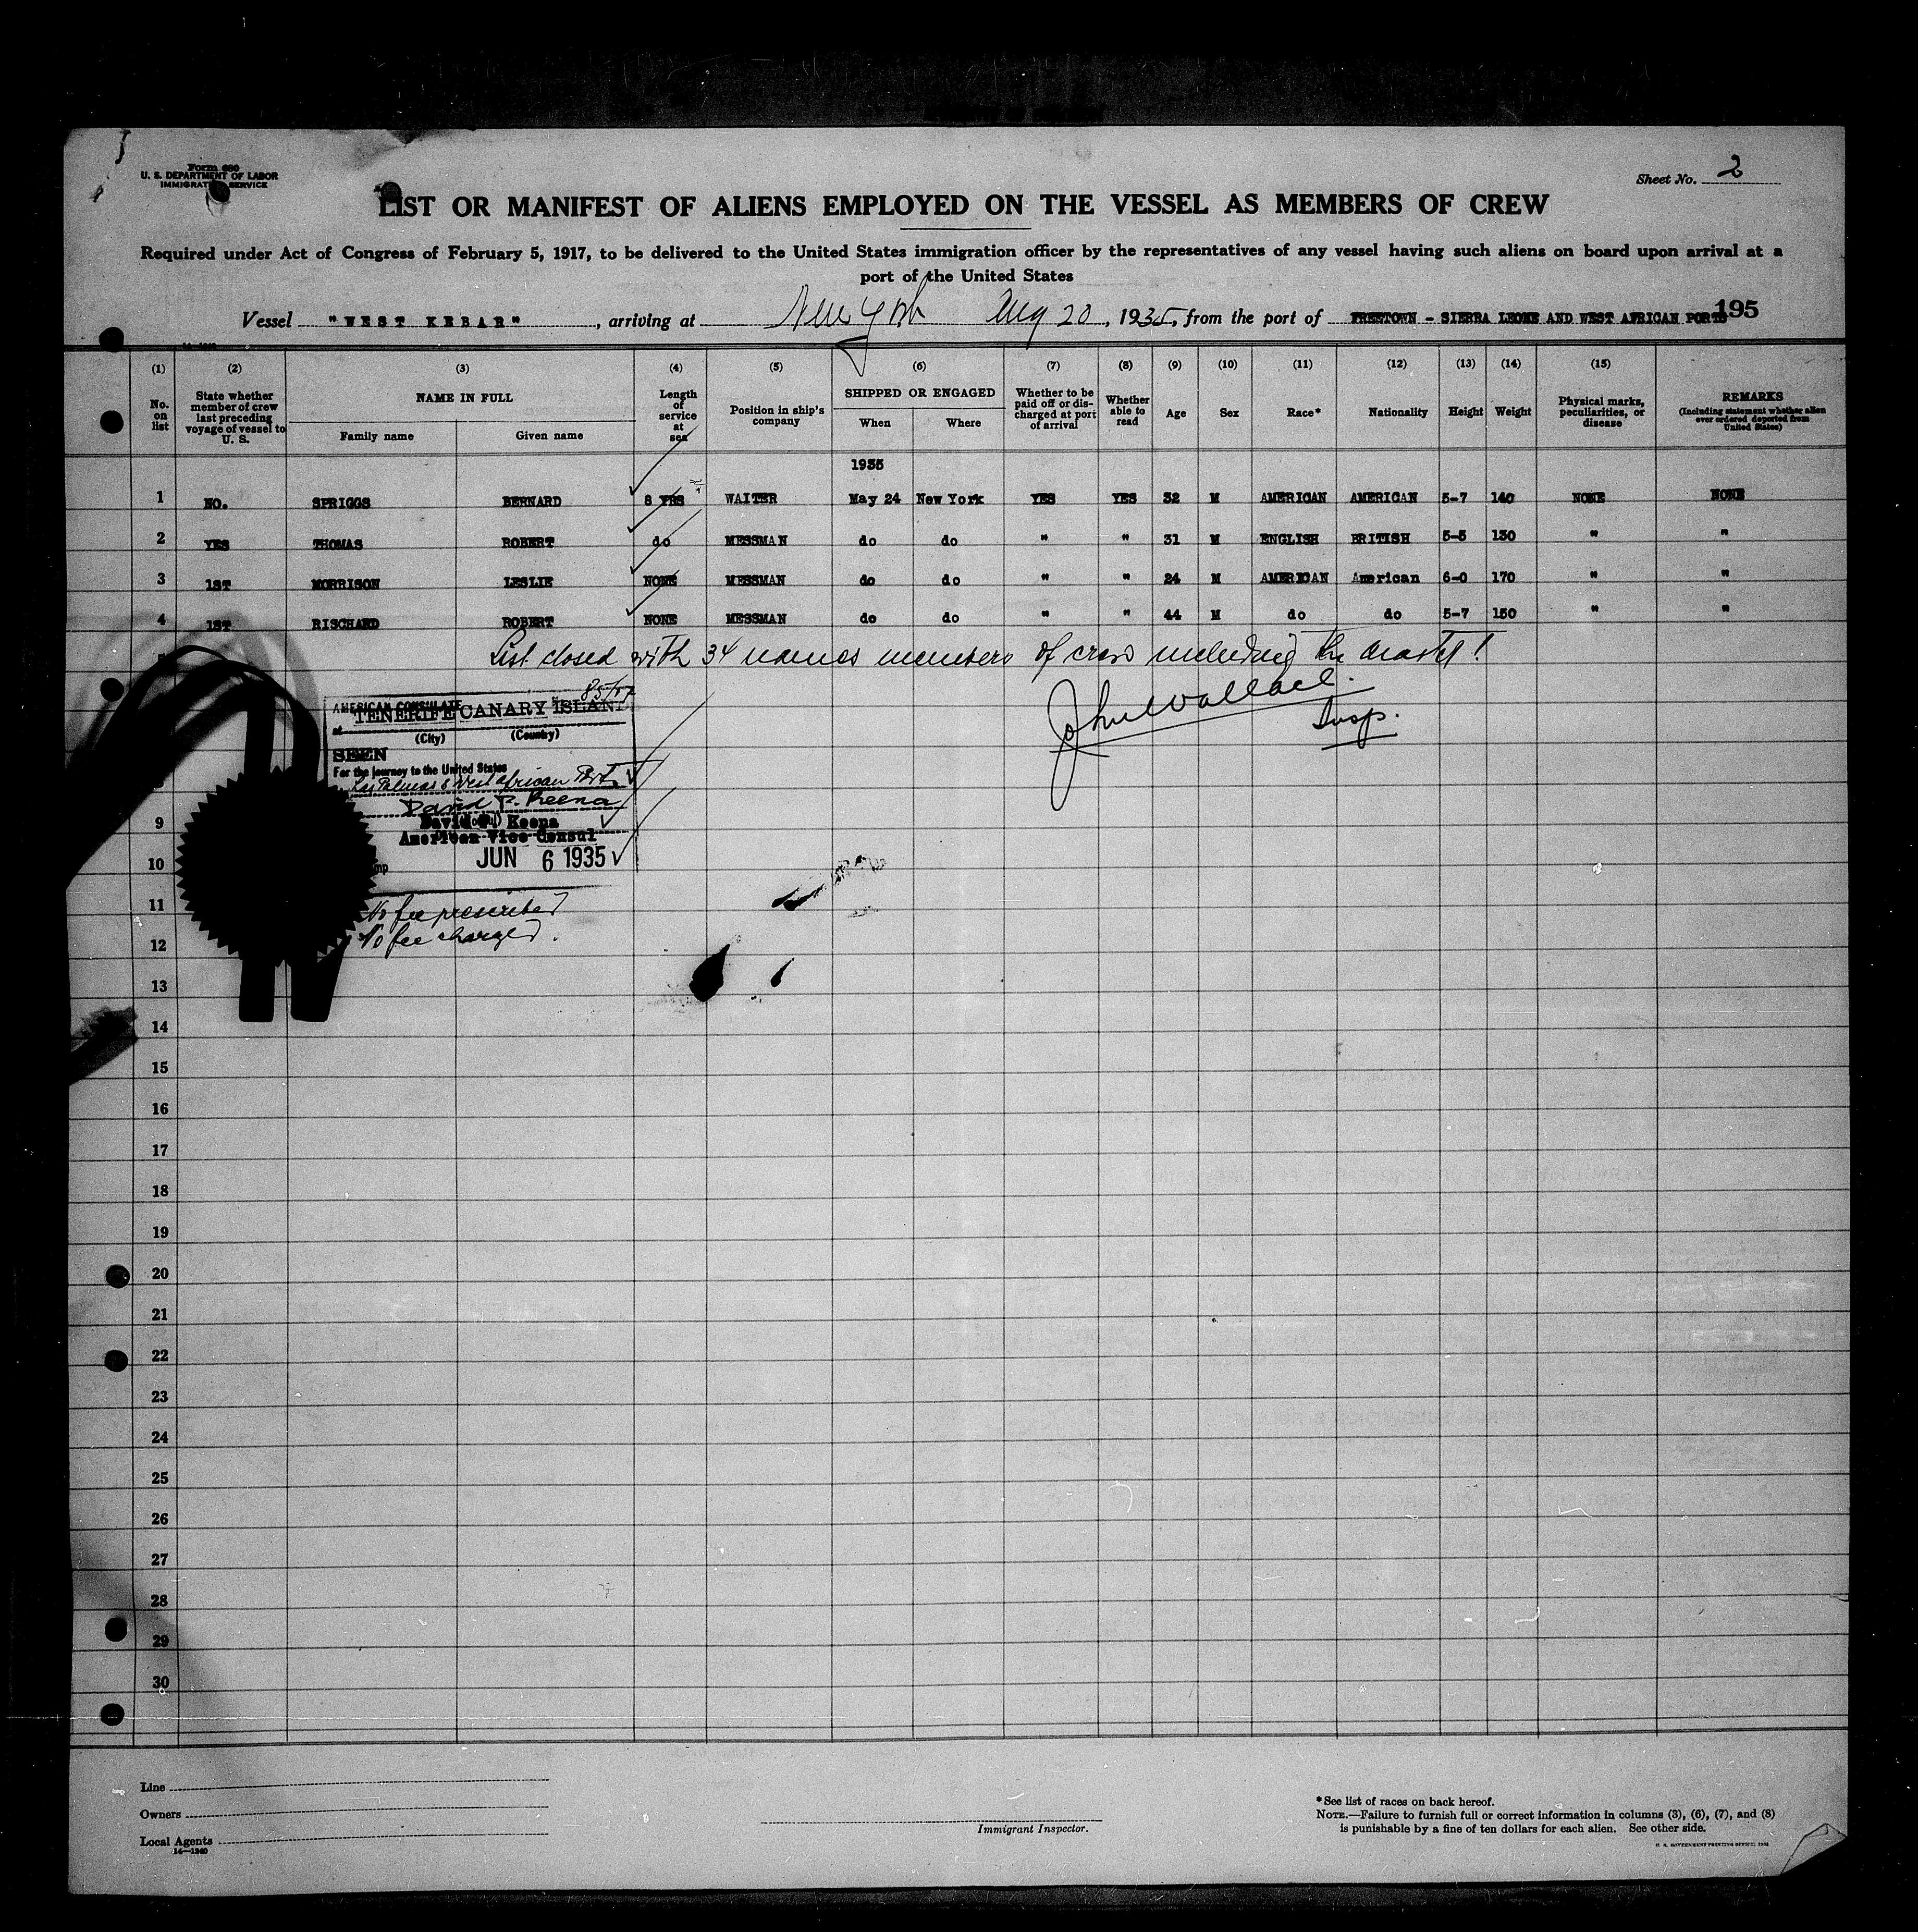 Form 680
U. S. DEPARTMENT OF LABOR
IMMIGRATION SERVICE
Sheet No. 2
LIST OR MANIFEST OF ALIENS EMPLOYED ON THE VESSEL AS MEMBERS OF CREW
Required under Act of Congress of February 5, 1917, to be delivered to the United States immigration officer by the representatives of any vessel having such aliens on board upon arrival at a
port of the United States
Vessel "WEST KEBAR", arriving at New York Aug 20, 1935, from the port of FREETOWN - SIERRA LEONE AND WEST AFRICAN PORTS 195
(1) (2) (3) (4) (5) (6) (7) (8) (9) (10) (11) (12) (13) (14) (15)
No. on list State whether member of crew last preceding voyage of vessel to U. S. NAME IN FULL Family name Given name Length of service at sea Position in ship's company SHIPPED OR ENGAGED When Where Whether to be paid off or discharged at port of arrival Whether able to read Age Sex Race* Nationality Height Weight Physical marks, peculiarities, or disease REMARKS (Including statement whether alien ever ordered deported from United States)
1935
1 NO. SPRIGGS BERNARD 8 YRS WAITER May 24 New York YES YES 32 M AMERICAN AMERICAN 5-7 140 NONE NONE
2 YES THOMAS ROBERT do MESSMAN do do " " 31 M ENGLISH BRITISH 5-5 130 " "
3 1ST MORRISON LESLIE NONE MESSMAN do do " " 24 M AMERICAN American 6-0 170 " "
4 1ST RISCHARD ROBERT NONE MESSMAN do do " " 44 M do do 5-7 150 " "
List closed with 34 names members of crew including the master!
John Wallace.
Insp.
AMERICAN CONSULATE
at TENERIFE CANARY ISLAND
(City) (Country)
SEEN
For the journey to the United States
Las Palmas & West African Ports
David P. Keena
David P. Keena
American Vice Consul
JUN 6 1935
No fee prescribed
No fee charged.
9
10
11
12
13
14
15
16
17
18
19
20
21
22
23
24
25
26
27
28
29
30
Line
Owners
Local Agents
14—1240
Immigrant Inspector.
*See list of races on back hereof.
NOTE.—Failure to furnish full or correct information in columns (3), (6), (7), and (8)
is punishable by a fine of ten dollars for each alien. See other side.